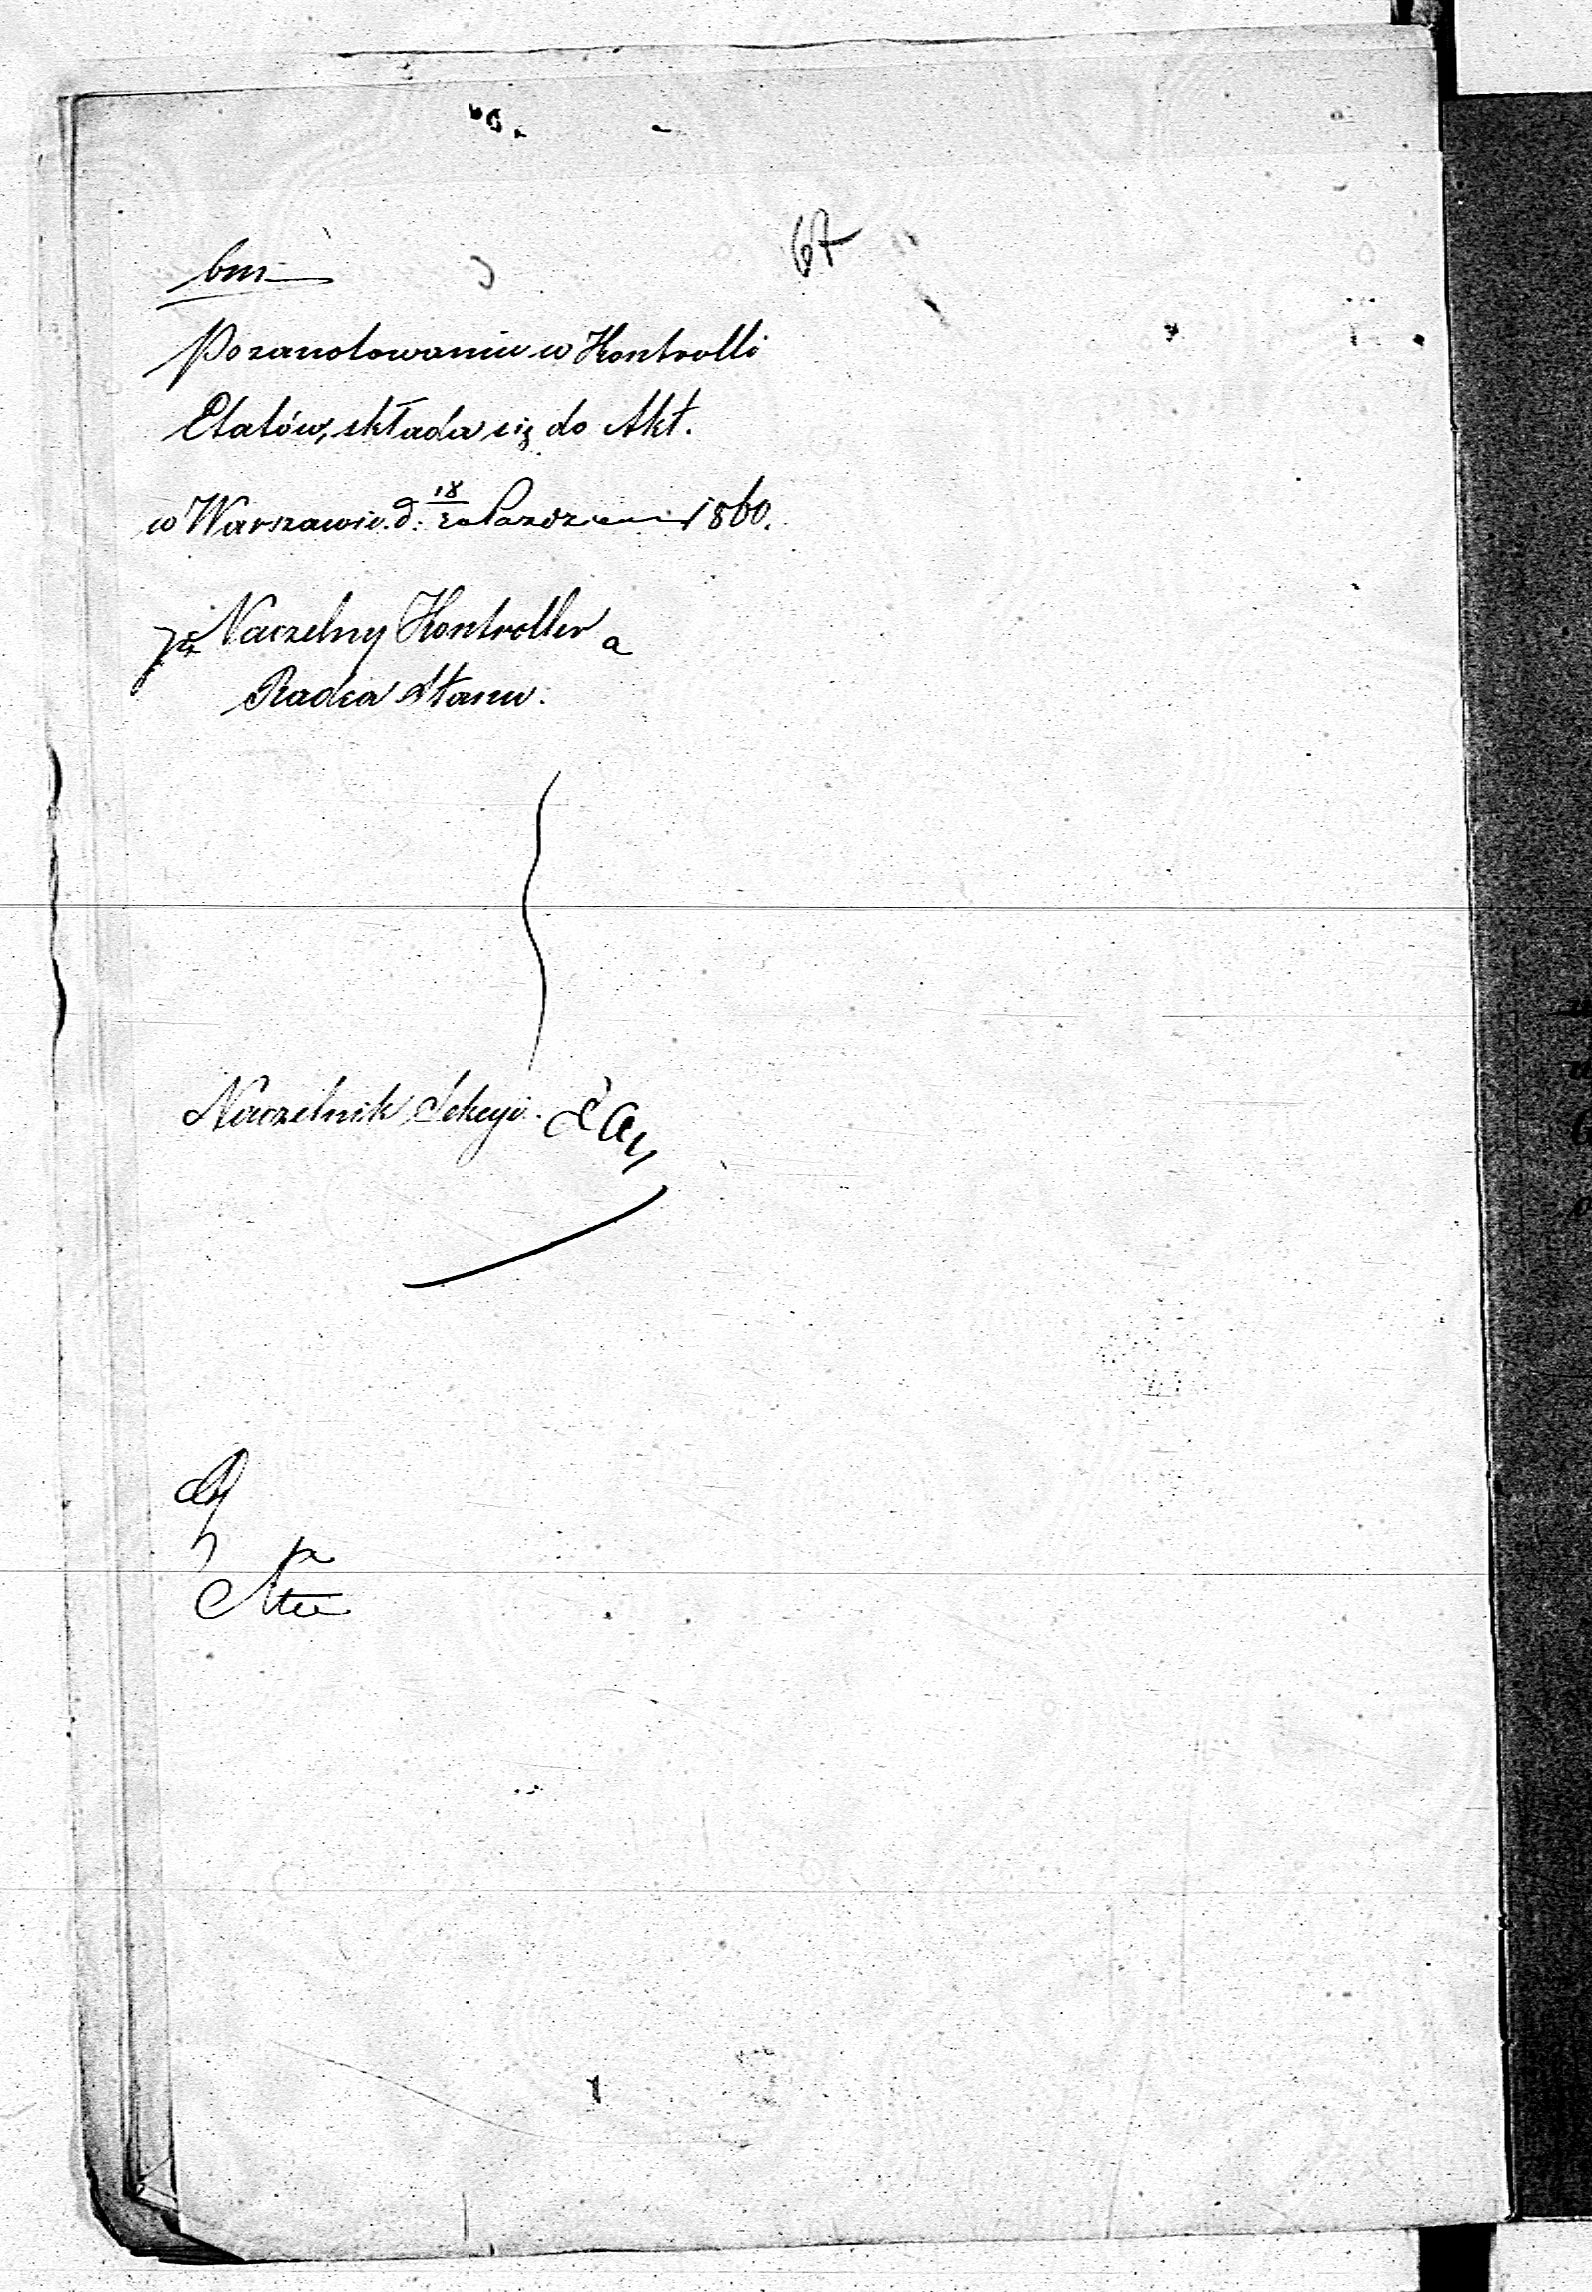 67
Po zanotowaniu w Kontrolli
Etatów, składa się do Akt.
w Warszawie d. 18/30 Październi 1860.
Naczelny Kontroller
Radca Stanu.
Naczelnik Sekcyi.